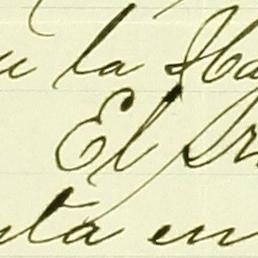 la Ha
El Sr
nta en